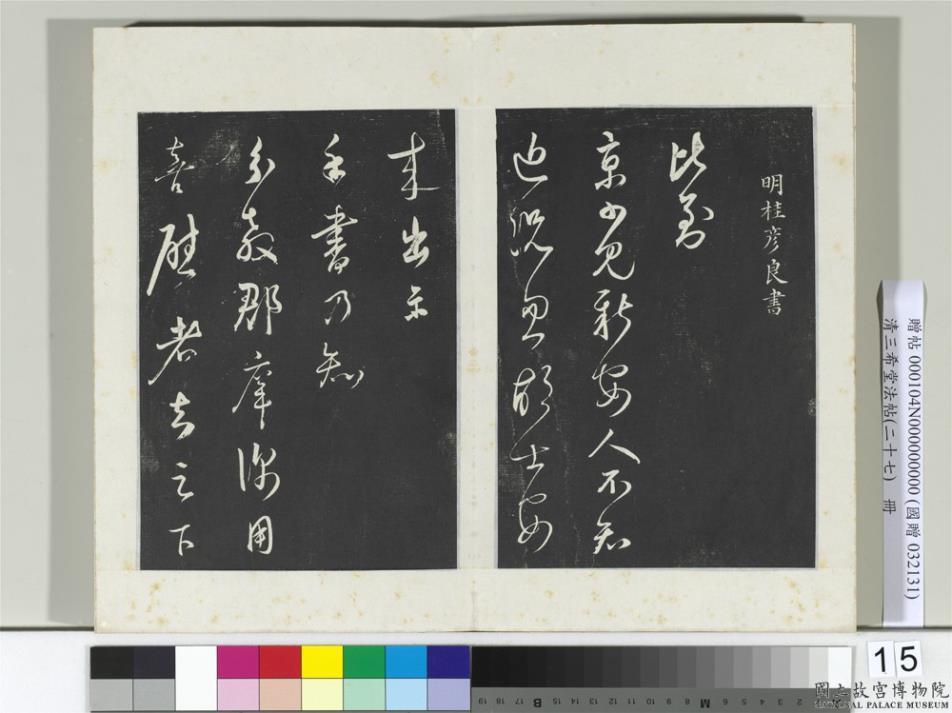 明桂彥良書
比到
京少見新安人不知
近況忽胡士安
來出示
手書乃知
分教郡庠深用
喜慰 之下
贈帖 000104N000000000 (國贈 032131)
清三希堂法帖(二十七) 冊
15
國立故宮博物院
NATIONAL PALACE MUSEUM